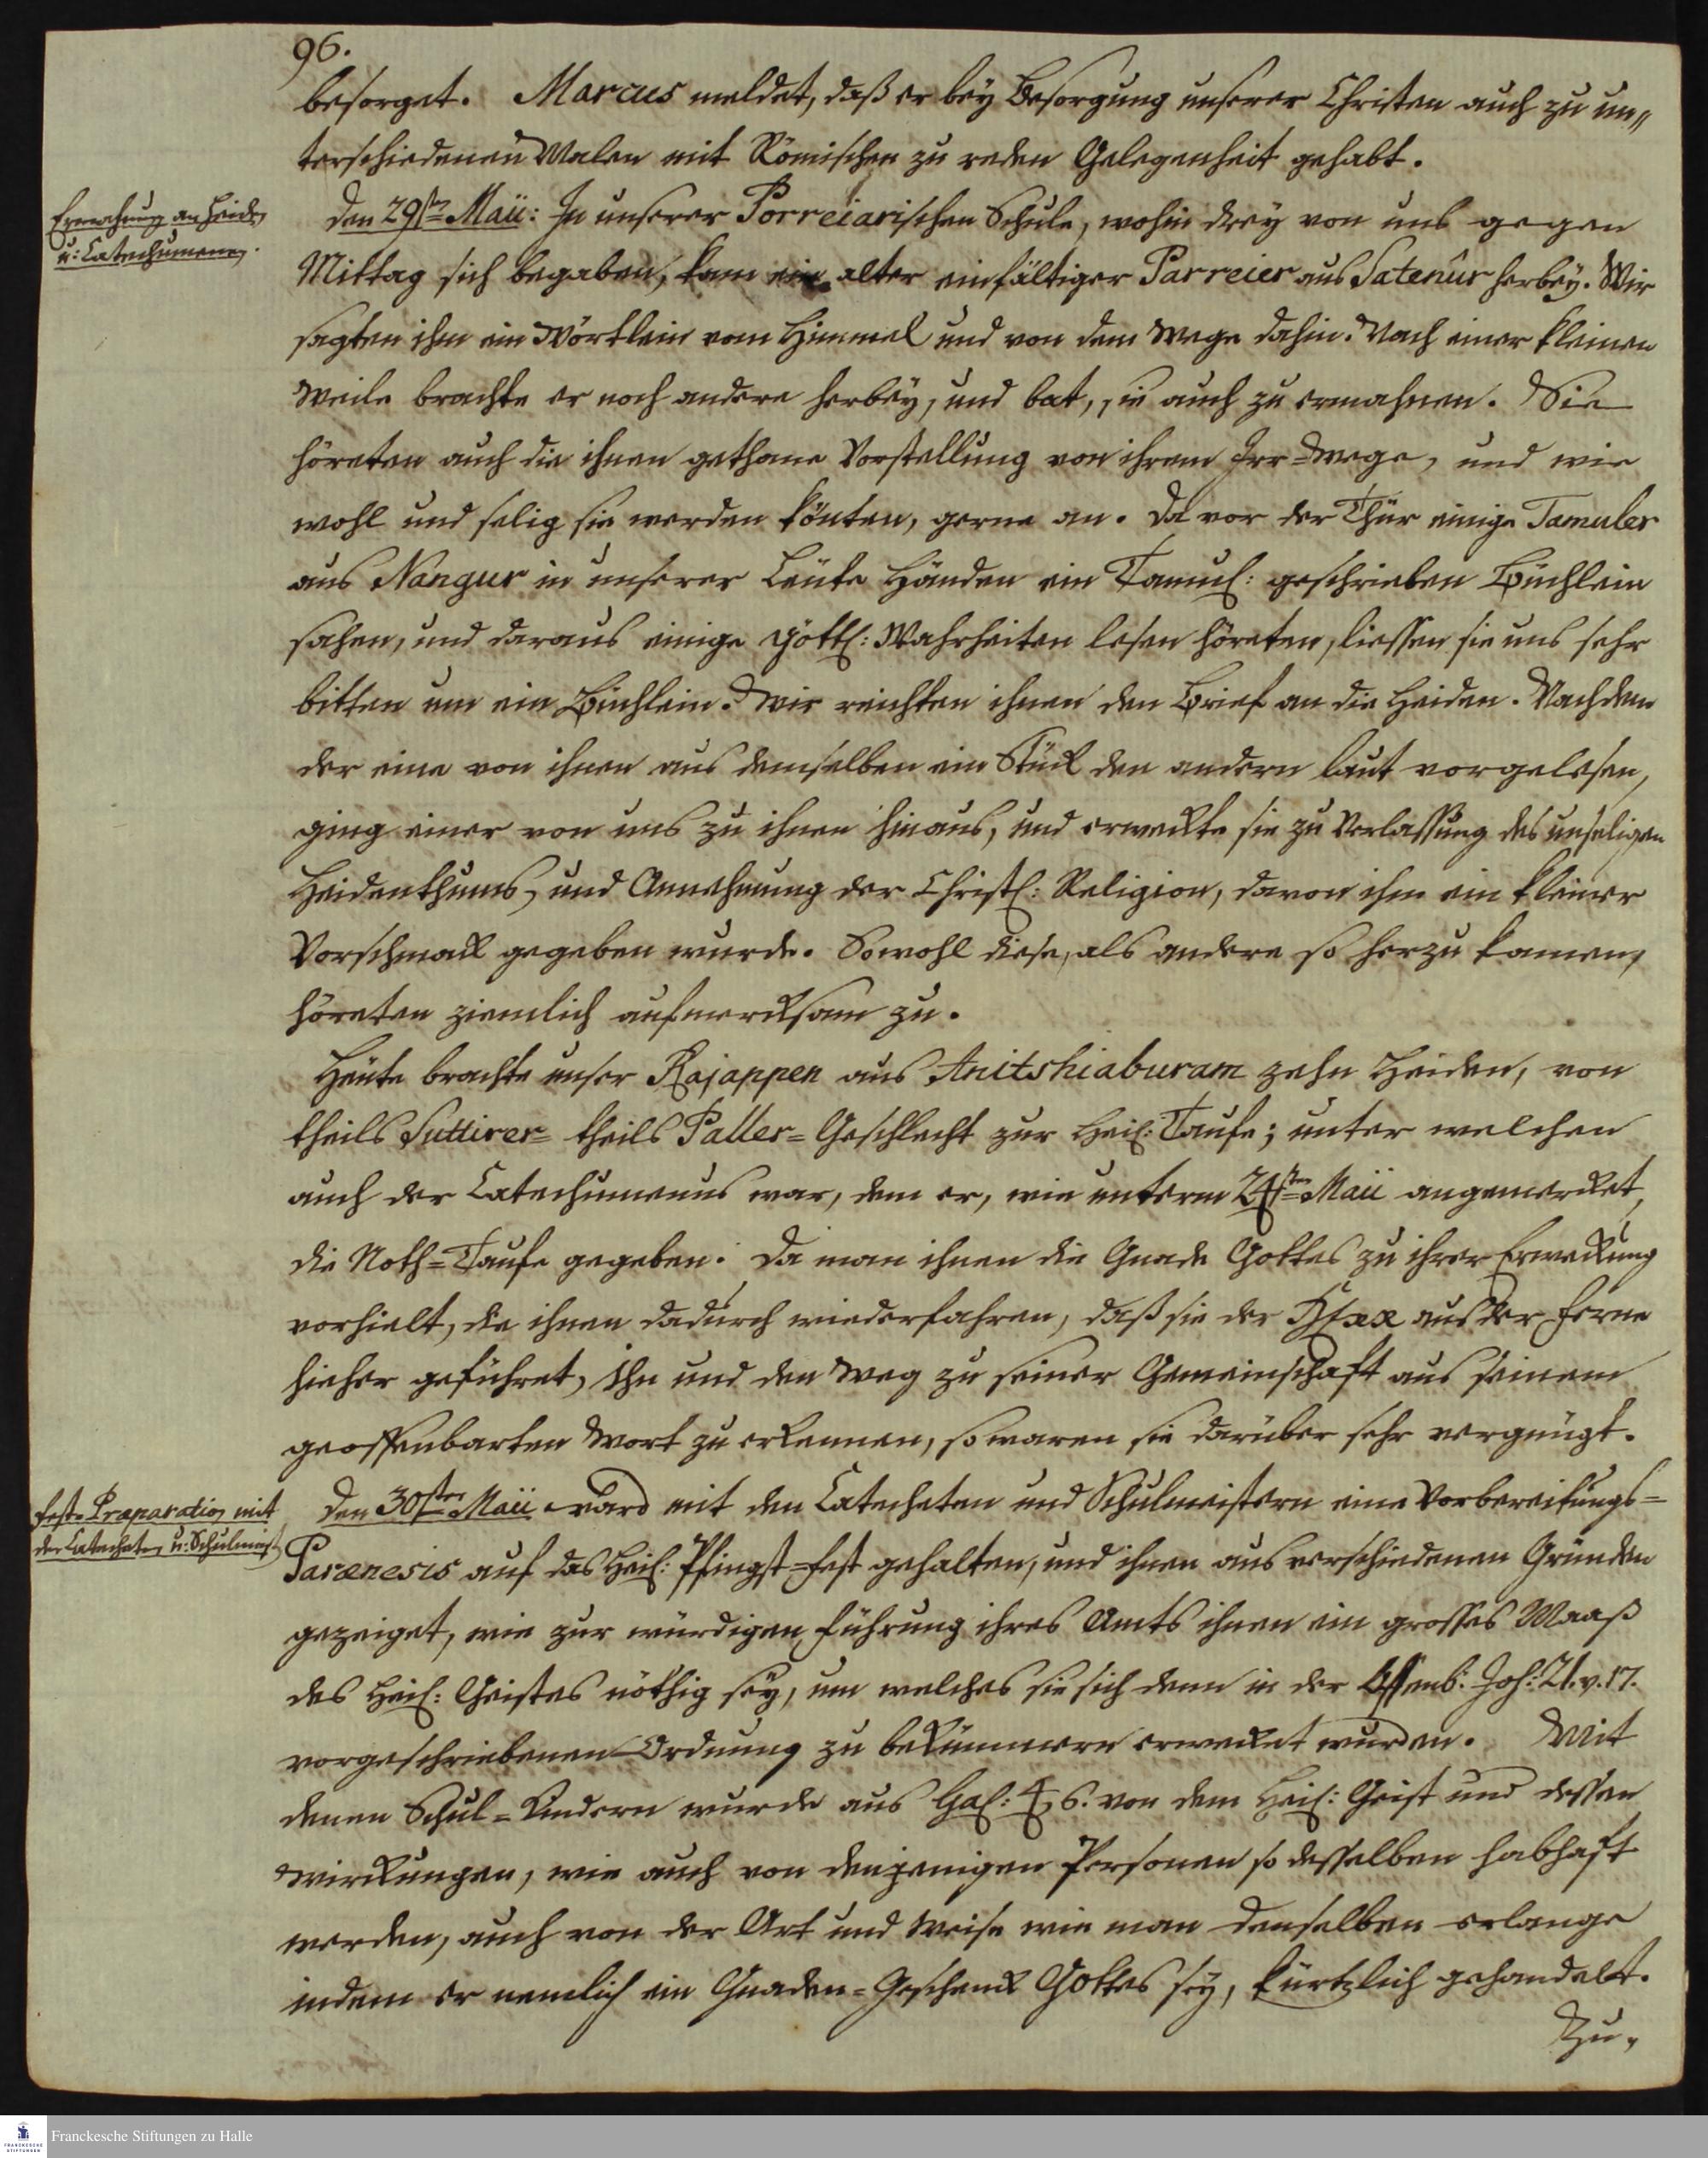 96.
besorget. Marcus meldet, daß er bey Besorgung unserer Christen auch zu un„
terschiedenen Malen mit Römischen zu reden Gelegenheit gehabt.
Ermahnung an Heiden
u: Catechumenen.
den 29sten Maii: In unserer Porreiarischen Schule, wohin drey von uns gegen
Mittag sich begaben, kam ein alter einfältiger Parreier aus Satenûr herbey. Wir
sagten ihm ein Wörtlein vom Himmel und von dem Wege dahin. Nach einer kleinen
Weile brachte er noch andere herbey, und bat, sie auch zu ermahnen. Sie
höreten auch die ihnen gethane Vorstellung von ihrem Irr=Wege, und wie
wohl und selig sie werden könten, gerne an. Da vor der Thür einige Tamuler
aus Nangur in unserer Leute Händen ein Tamul: geschrieben Büchlein
sahen, und daraus einige göttl: Wahrheiten lesen höreten, liessen sie uns sehr
bitten um ein Büchlein. Wir reichten ihnen den Brief an die Heiden. Nachdem
der eine von ihnen aus demselben ein Stük den andern laut vorgelesen,
ging einer von uns zu ihnen hinaus, und erwekte sie zu Verlassung des unseligen
Heidenthums, und Annehmung der Christl: Religion, davon ihm ein kleiner
Vorschmak gegeben wurde. Sowohl diese, als andere so herzu kamen,
höreten ziemlich aufmerksam zu.
Heute brachte unser Rajappen aus Anitshiaburam zehn Heiden, von
theils Suttirer= theils Paller=Geschlecht zur Heil: Taufe; unter welchen
auch der Catechumenus war, dem er, wie unterm 24sten Maii angemerket,
die Noth=Taufe gegeben. Da man ihnen die Gnade Gottes zu ihrer Erwekung
vorhielt, die ihnen dadurch wiederfahren, daß sie der HErr aus der Ferne
hieher geführet, Ihn und den Weg zu seiner Gemeinschaft aus seinem
geoffenbarten Wort zu erkennen, so waren sie darüber sehr vergnügt.
Fest-Præparation mit
den Catecheten u: Schulmeist
den 30sten Maii ward mit den Catecheten und Schulmeistern eine Vorbereitungs=
Parænesis auf das Heil: Pfingst=Fest gehalten, und ihnen aus verschiedenen Gründen
gezeiget, wie zur würdigen Führung ihres Amts ihnen ein grosses Maaß
des Heil: Geistes nöthig sey, um welches sie sich denn in der Offenb: Joh: 21. v. 17.
vorgeschriebenen Ordnung zu bekümmern erweket wurden. Mit
denen Schul=Kindern wurde aus Gal: 4, 6. von dem Heil: Geist und dessen
Wirkungen, wie auch von denjenigen Personen so desselben habhaft
werden, auch von der Art und Weise wie man denselben erlange
indem er nemlich ein Gnaden=Geschenk Gottes sey, kürtzlich gehandelt.
Zu„
Franckesche Stiftungen zu Halle